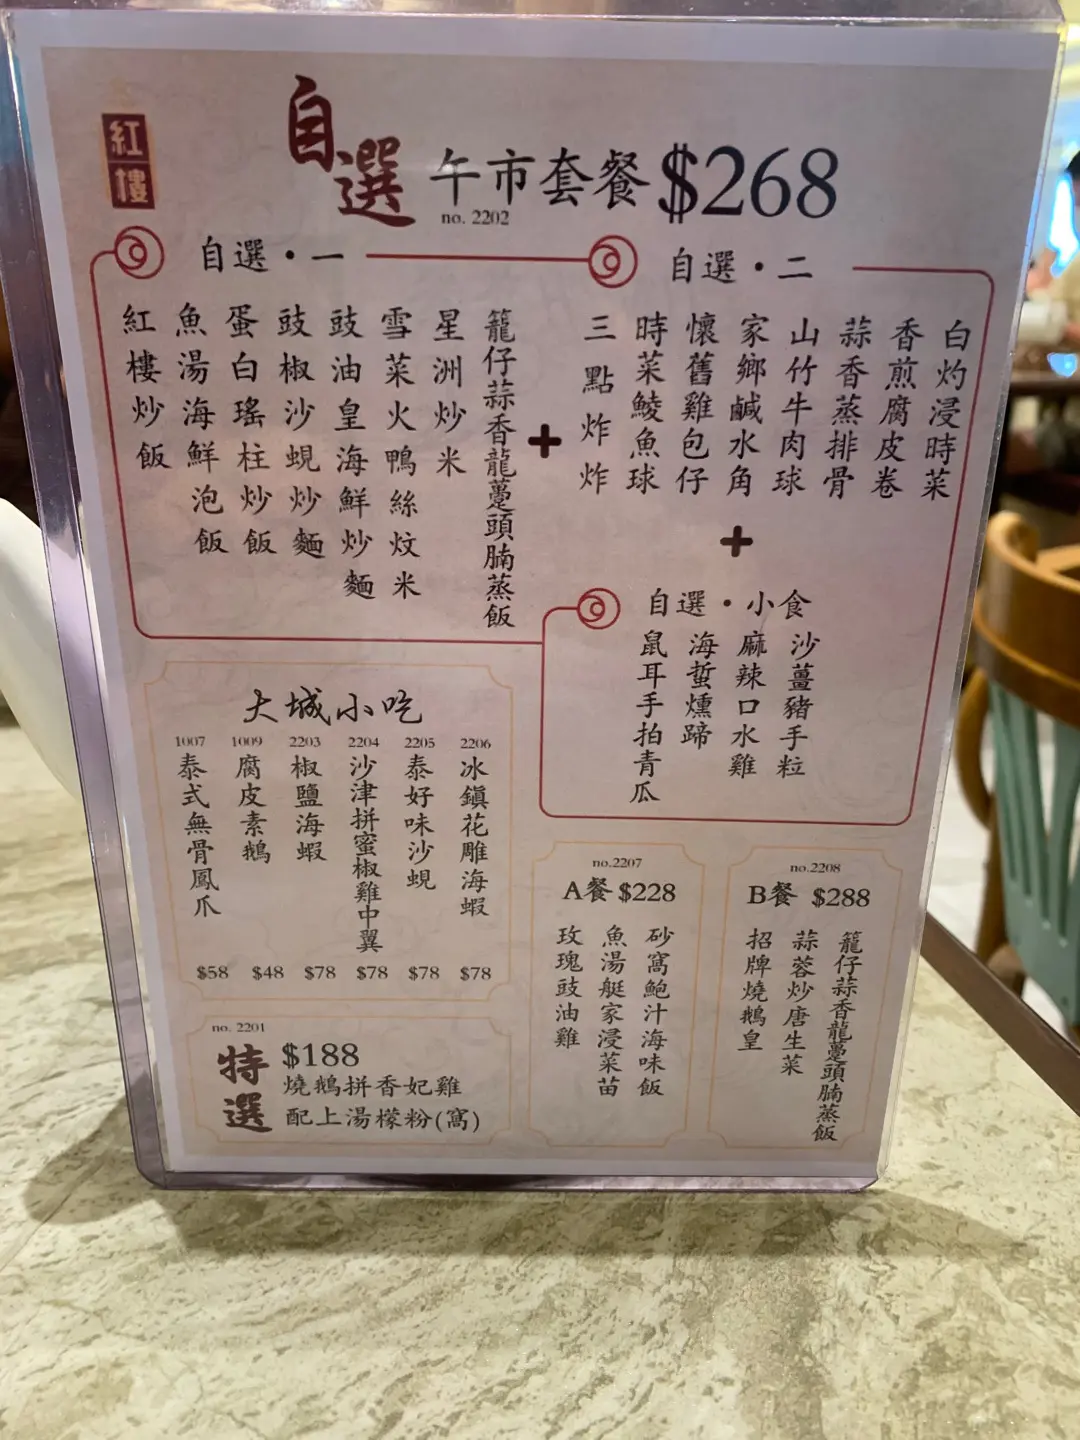 紅樓
自選午市套餐 $268
no. 2202
自選·一
籠仔蒜香龍躉頭腩蒸飯
星洲炒米
雪菜火鴨絲炆米
豉油皇海鮮炒麵
豉椒沙蜆炒麵
蛋白瑤柱炒飯
魚湯海鮮泡飯
紅樓炒飯
+
自選·二
白灼浸時菜
香煎腐皮卷
蒜香蒸排骨
山竹牛肉球
家鄉鹹水角
懷舊雞包仔
時菜鯪魚球
三點炸炸
+
自選·小食
沙薑豬手粒
麻辣口水雞
海蜇燻蹄
鼠耳手拍青瓜
大城小吃
2206
冰鎮花雕海蝦
$78
2205
泰好味沙蜆
$78
2204
沙津拼蜜椒雞中翼
$78
2203
椒鹽海蝦
$78
1009
腐皮素鵝
$48
1007
泰式無骨鳳爪
$58
no. 2201
特選
$188
燒鵝拼香妃雞
配上湯檬粉(窩)
no.2207
A餐 $228
砂窩鮑汁海味飯
魚湯艇家浸菜苗
玫瑰豉油雞
no.2208
B餐 $288
籠仔蒜香龍躉頭腩蒸飯
蒜蓉炒唐生菜
招牌燒鵝皇